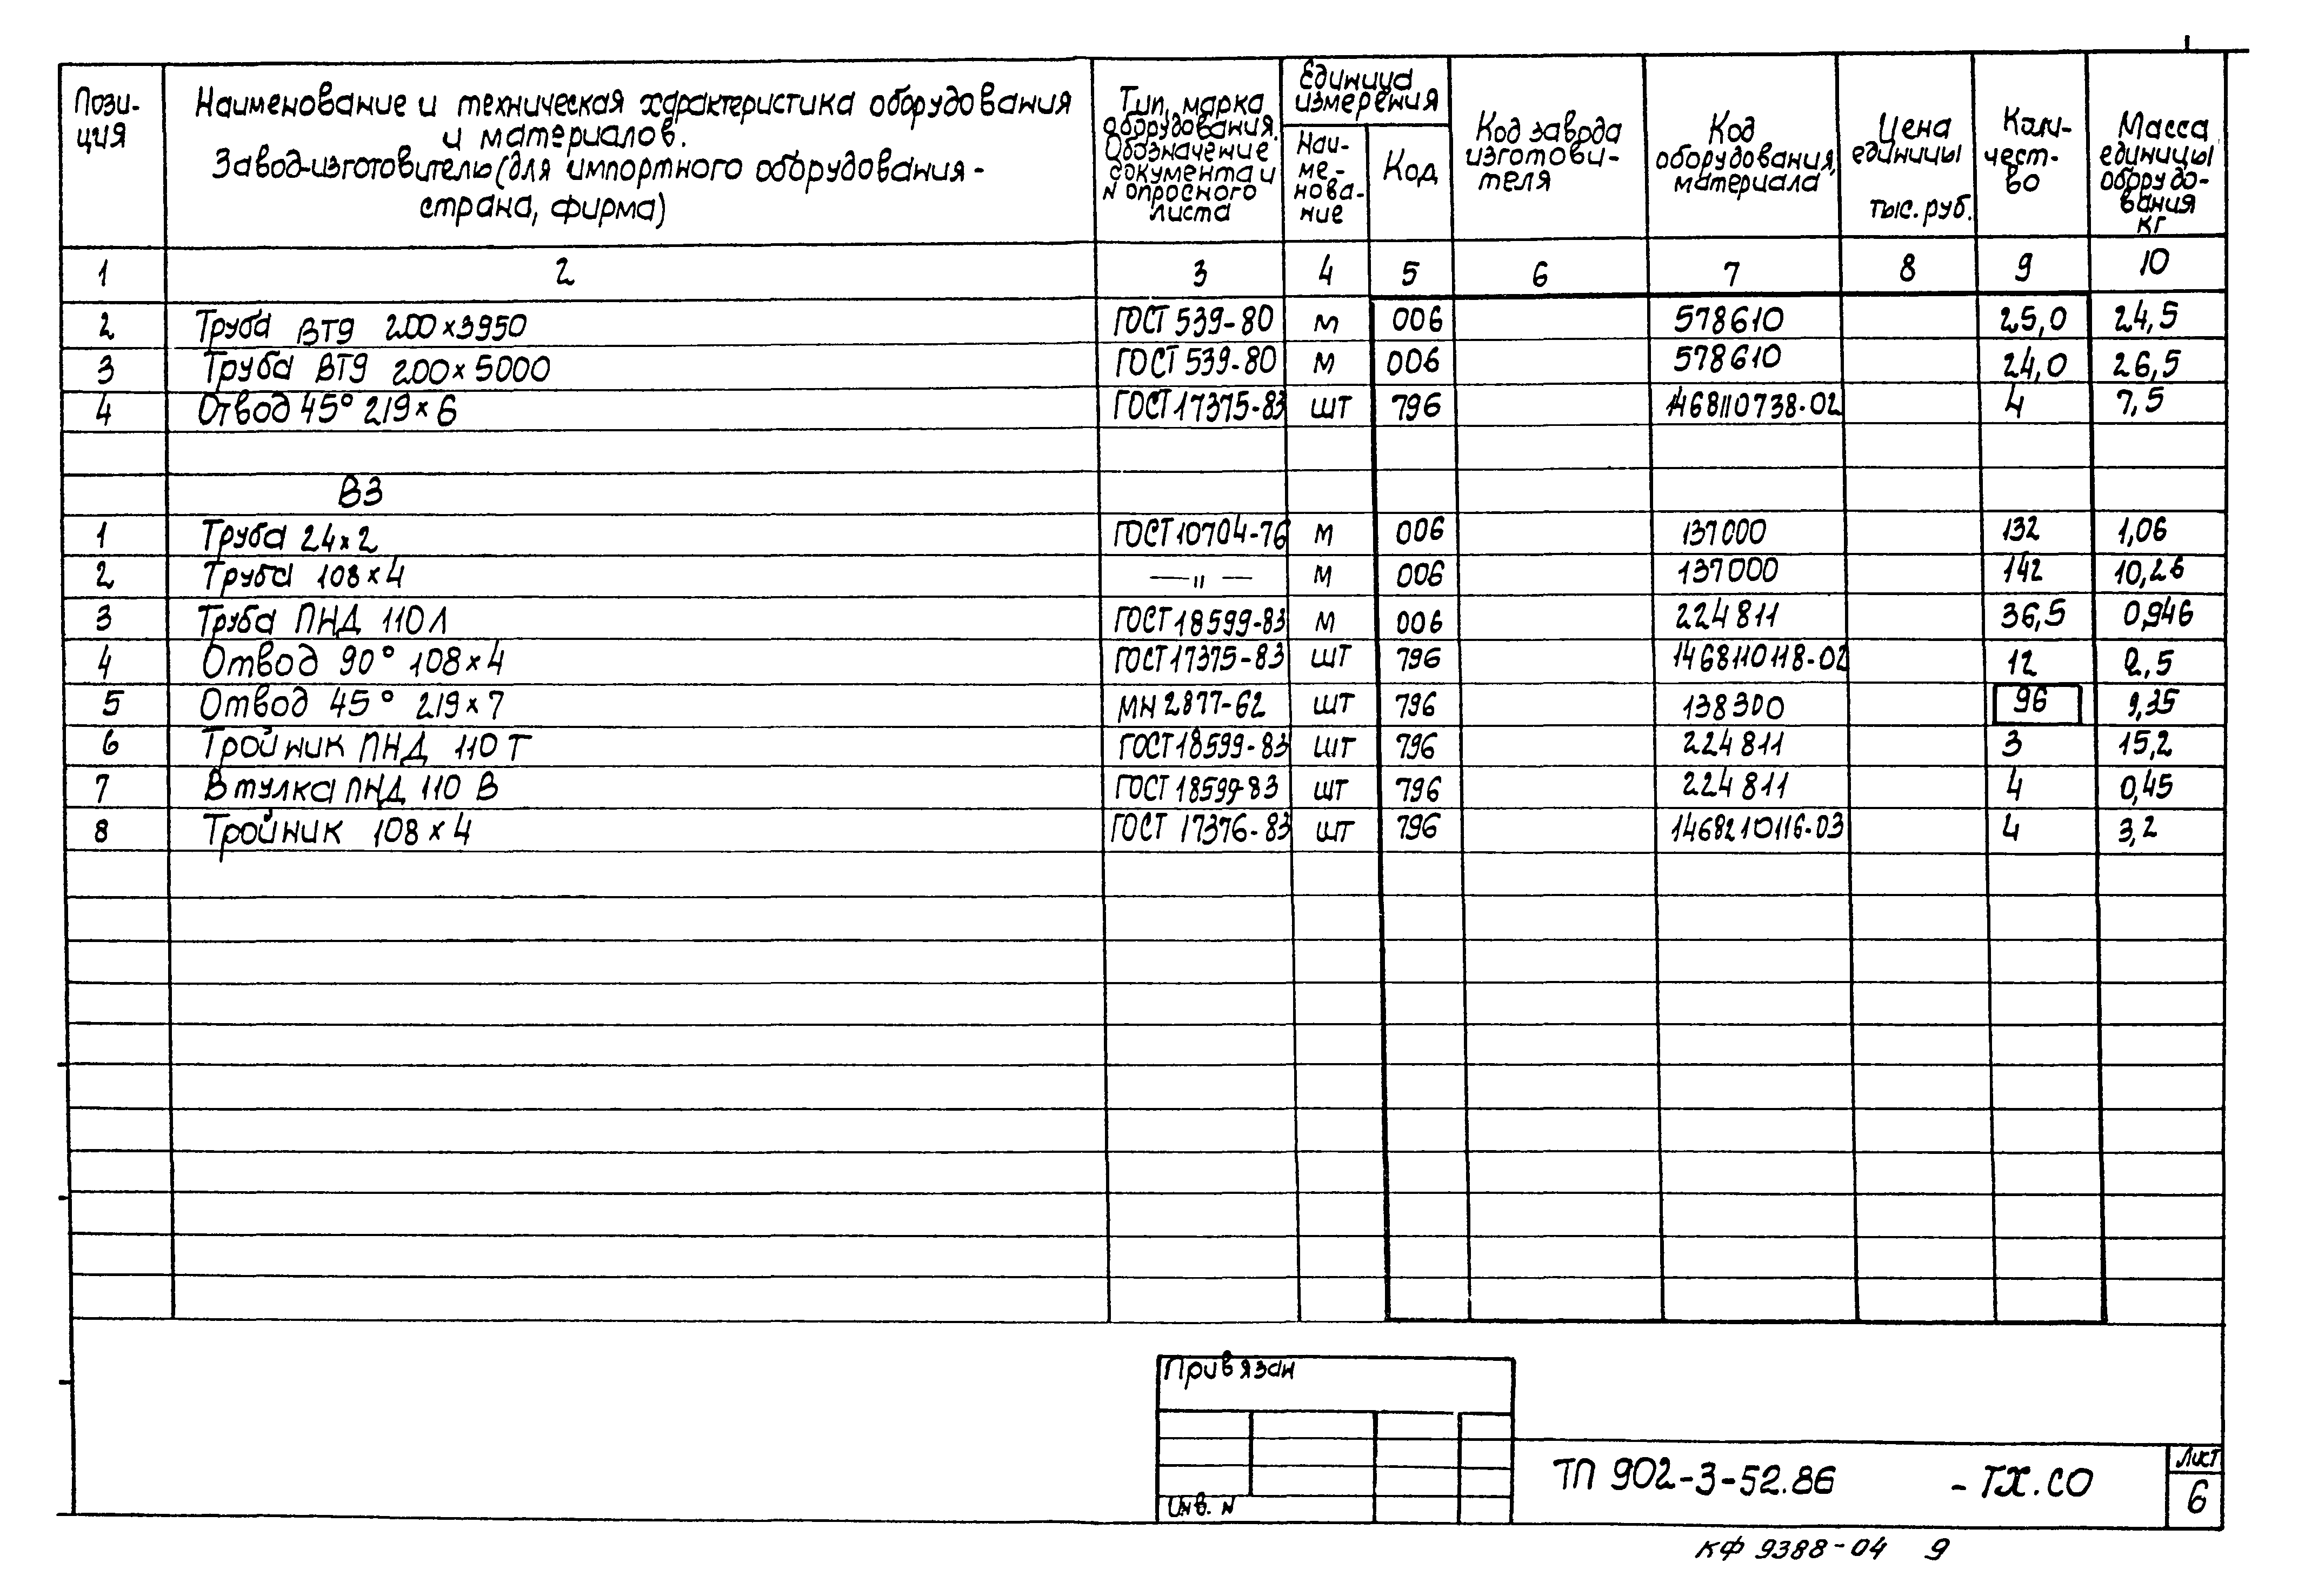 Пози-
ция
Наименование и техническая характеристика оборудования
и материалов.
Завод-изготовитель (для импортного оборудования -
страна, фирма)
Тип, марка
оборудования.
Обозначение
документа и
N опросного
листа
Единица
измерения
Наи-
ме-
нова-
ние
Код
Код завода
изготови-
теля
Код
оборудования,
материала
Цена
единицы
тыс. руб.
Коли-
чест-
во
Масса
единицы
оборудо-
вания
кг
1 2 3 4 5 6 7 8 9 10
2 Труба ВТ9 200×3950 ГОСТ 539-80 м 006 578610 25,0 24,5
3 Труба ВТ9 200×5000 ГОСТ 539-80 м 006 578610 24,0 26,5
4 Отвод 45° 219×6 ГОСТ 17375-83 шт 796 1468110738-02 4 7,5
В3
1 Труба 24×2 ГОСТ 10704-76 м 006 137000 132 1,06
2 Труба 108×4 —"— м 006 137000 142 10,26
3 Труба ПНД 110Л ГОСТ 18599-83 м 006 224811 36,5 0,946
4 Отвод 90° 108×4 ГОСТ 17375-83 шт 796 1468110118-02 12 2,5
5 Отвод 45° 219×7 МН 2877-62 шт 796 138300 96 9,35
6 Тройник ПНД 110Т ГОСТ 18599-83 шт 796 224811 3 15,2
7 Втулка ПНД 110 В ГОСТ 18599-83 шт 796 224811 4 0,45
8 Тройник 108×4 ГОСТ 17376-83 шт 796 1468210116-03 4 3,2
Привязан
Инв. N
ТП 902-3-52.86 - ТХ.СО
Лист
6
КФ 9388-04 9